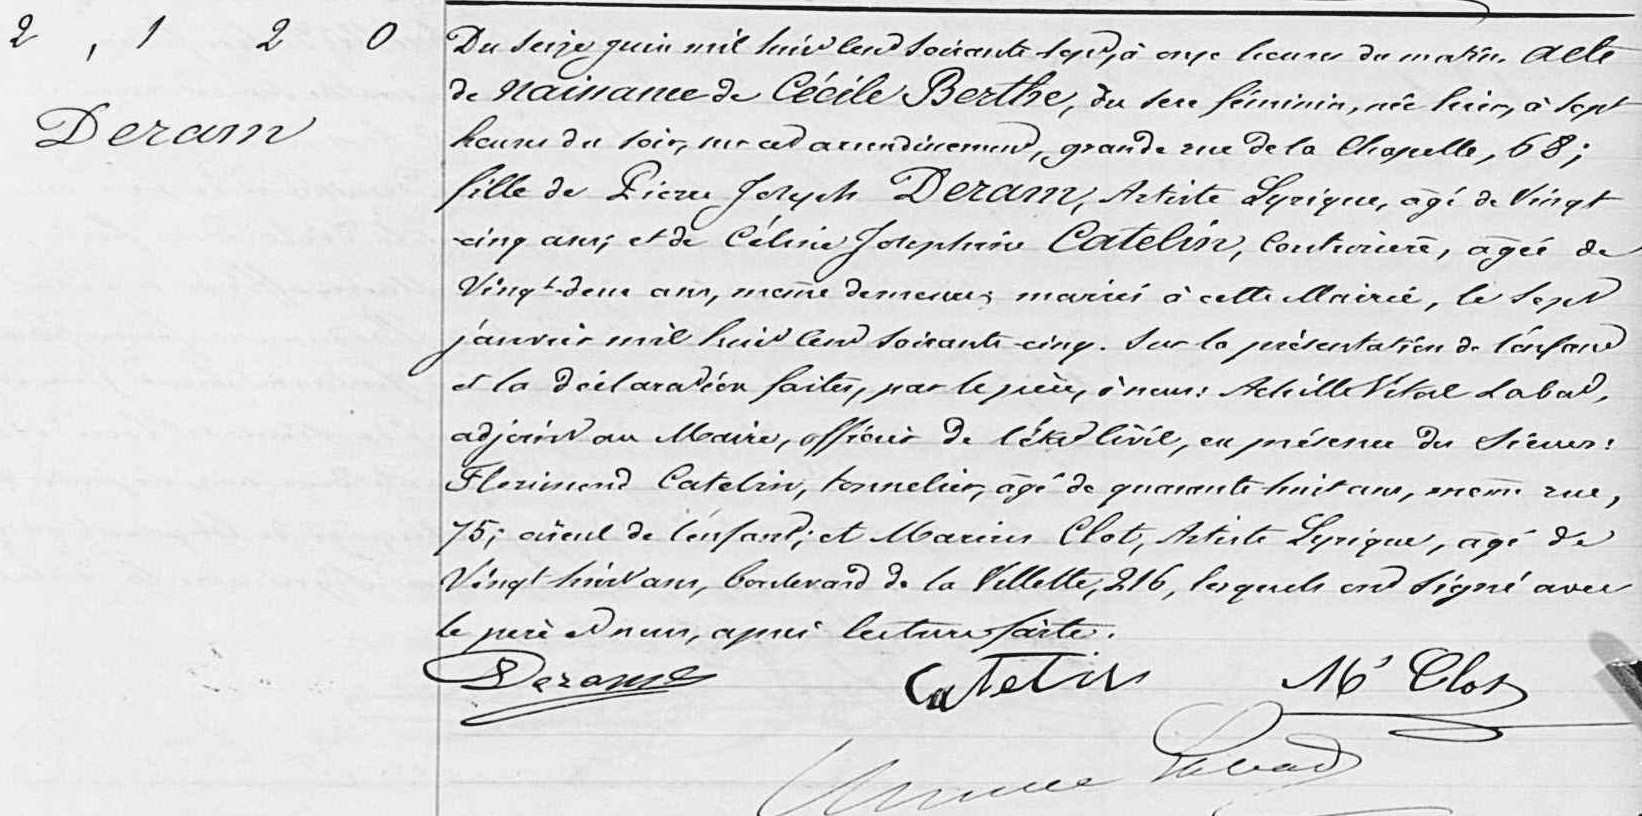 2,120
Deram
Du Seize juin mil huit cent soixante-sept, à onze heures du matin. Acte
de Naissance de Cécile Berthe, du sexe féminin, née hier, à sept
heures du soir, sur cet arrondissement, grande rue de la Chapelle, 68;
fille de Pierre Joseph Deram, Artiste Lyrique, âgé de Vingt
cinq ans; et de Céline Joséphine Catelin, Couturière, âgée de
Vingt-deux ans, même demeure; mariés à cette Mairie, le Sept
janvier mil huit cent soixante-cinq. Sur la présentation de l'enfant
et la déclaration faites, par le père, à nous: Achille Vital Labat,
adjoint au Maire, officier de l'état civil, en présence du Sieurs:
Florimond Catelin, tonnelier, âgé de quarante huit ans, même rue,
75; aïeul de l'enfant; et Marius Clot, Artiste Lyrique, âgé de
Vingt huit ans, boulevard de la Villette, 216, lesquels ont Signé avec
le père et nous, après lecture faite.
Deram Catelin M' Clot
Labat